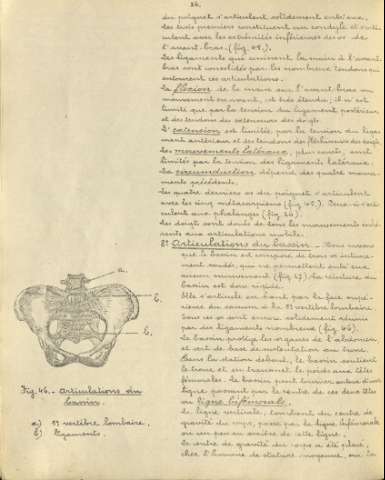 26.
du poignet s'articulent solidement entr'eux.
Les trois premiers constituent un condyle et s'arti-
culent avec les extrémités inférieures des os de
l'avant-bras. (fig.
Les ligaments qui unissent la main à l'avant-
bras sont consolidés par les nombreux tendons qui
entourent ces articulations.
La flexion de la main sur l'avant-bras ou
mouvement en avant, est très étendue; il n'est
limité que par la tension du ligament postérieur
et des tendons des extenseurs des doigts.
L'extension est limitée, par la tension du liga-
ment antérieur et des tendons des fléchisseurs des doigts.
Les mouvements latéraux, plus courts, sont
limités par la tension des ligaments latéraux.
La circumduction dépend des quatre mouve-
ments précédents.
Les quatre derniers os du poignet s'articulent
avec les cinq métacarpiens (fig. 45.). Ceux-ci s'arti-
culent aux phalanges (fig.
Les doigts sont doués de tous les mouvements inhé-
rents aux articulations mobiles.
2° Articulations du bassin. - Nous savons
que le bassin est composé de trois os intime-
ment soudés, qui ne permettent entr'eux
aucun mouvement. (fig. 47) La ceinture du
bassin est donc rigide.
Elle s'articule en haut par la face supé-
rieure du sacrum à la 5e vertèbre lombaire.
Tous ces os sont encore solidement réunis
par des ligaments nombreux (fig. 46).
Le bassin protège les organes de l'abdomen
et sert de base de sustentation au tronc.
Dans la station debout, le bassin soutient
le tronc et en transmet le poids aux têtes
fémorales. Le bassin peut tourner autour d'une
ligne passant par le centre de ces deux têtes
ou ligne bifémorale.
La ligne verticale, tombant du centre de
gravité du corps, passe par la ligne bifémorale
ou un peu en arrière de cette ligne.
Le centre de gravité du corps a été placé,
chez l'homme de stature moyenne, sur la
a.
b.
b.
Fig. 46. - Articulations du
bassin.
a) 5e vertèbre lombaire,
b) ligaments.